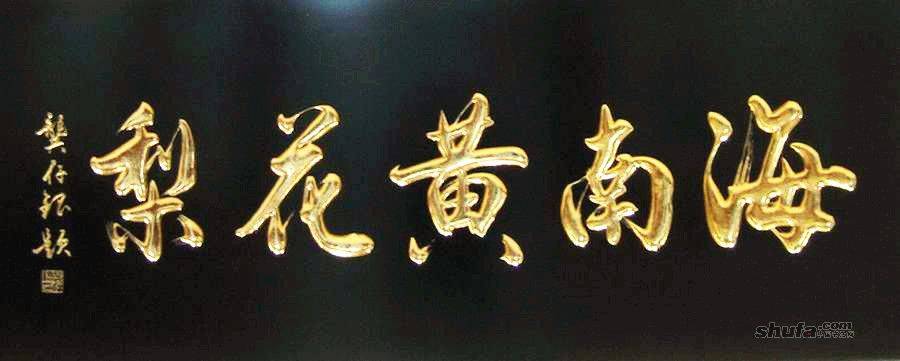 海南黄花梨
龚存银题
shufa.com